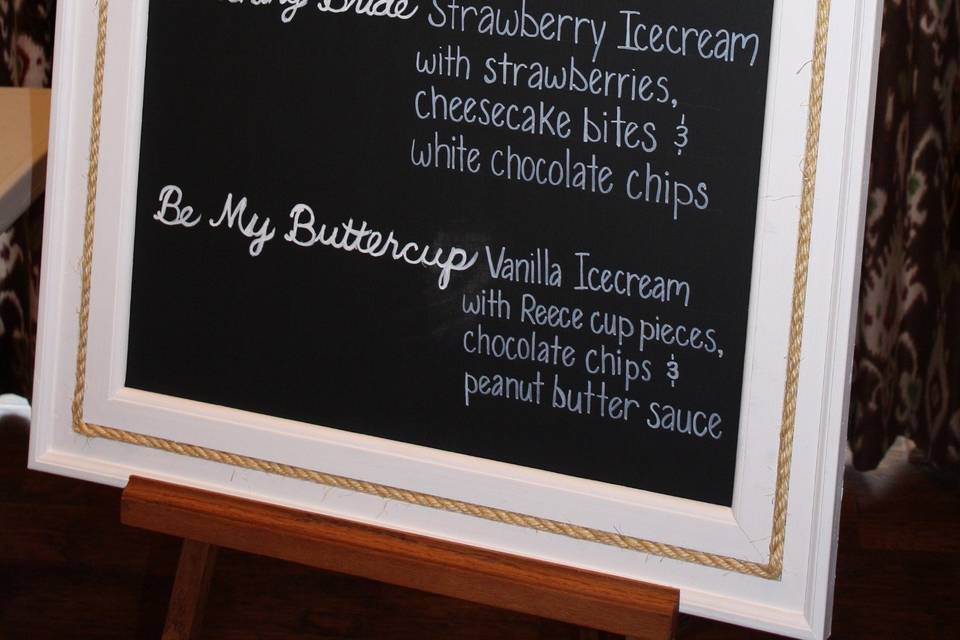 Bride Strawberry Icecream
with strawberries,
cheesecake bites &
white chocolate chips
Be My Buttercup Vanilla Icecream
with Reece cup pieces,
chocolate chips &
peanut butter sauce